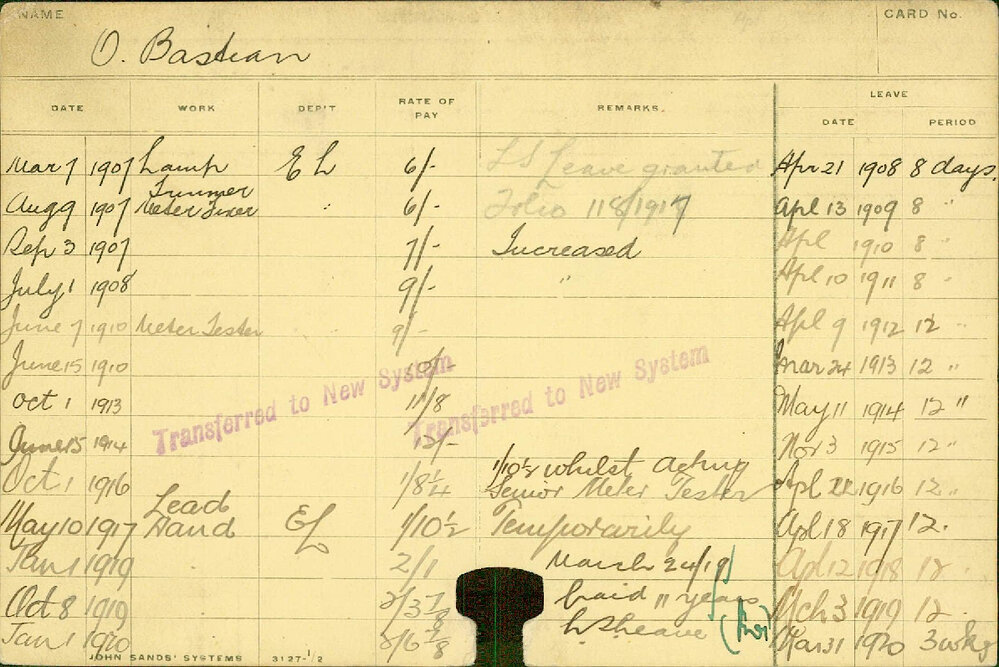 NAME
CARD No.
O. Bastian
DATE WORK DEPT RATE OF PAY REMARKS. LEAVE
DATE PERIOD
Mar 7 1907 Lamp EL 6/- LS Leave granted Apr 21 1908 8 days.
Trimmer
Aug 9 1907 Meter Fixer " 6/- Folio 118/1917 Apl 13 1909 8 "
Sep 3 1907 7/- Increased Apl 1910 8 "
July 1 1908 9/- " Apl 10 1911 8 "
June 7 1910 Meter Tester " 9/- Apl 9 1912 12 "
June 15 1910 Mar 24 1913 12 "
Transferred to New System
Transferred to New System
Oct 1 1913 11/8 May 11 1914 12 "
June 15 1914 12/- Nov 3 1915 12 "
1/10½ whilst acting
Oct 1 1916 1/8¼ Senior Meter Tester Apl 1916 12 "
Lead
May 10 1917 Hand EL 1/10½ Temporarily Apl 18 1917 12.
Jan 1 1919 2/1 March 24/19 Apl 12 1918 12 "
Oct 8 1919 2/3⅞ paid 11 years Mch 3 1919 12 "
Jan 1 1920 2/6⅞ LSleave Mar 31 1920 3 wks
JOHN SANDS' SYSTEMS 3127-1/2